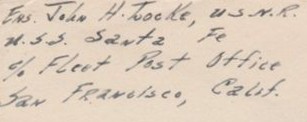 Ens. John H. Locke, U.S.N.R.
U.S.S. Santa Fe
c/o Fleet Post Office
San Francisco, Calif.